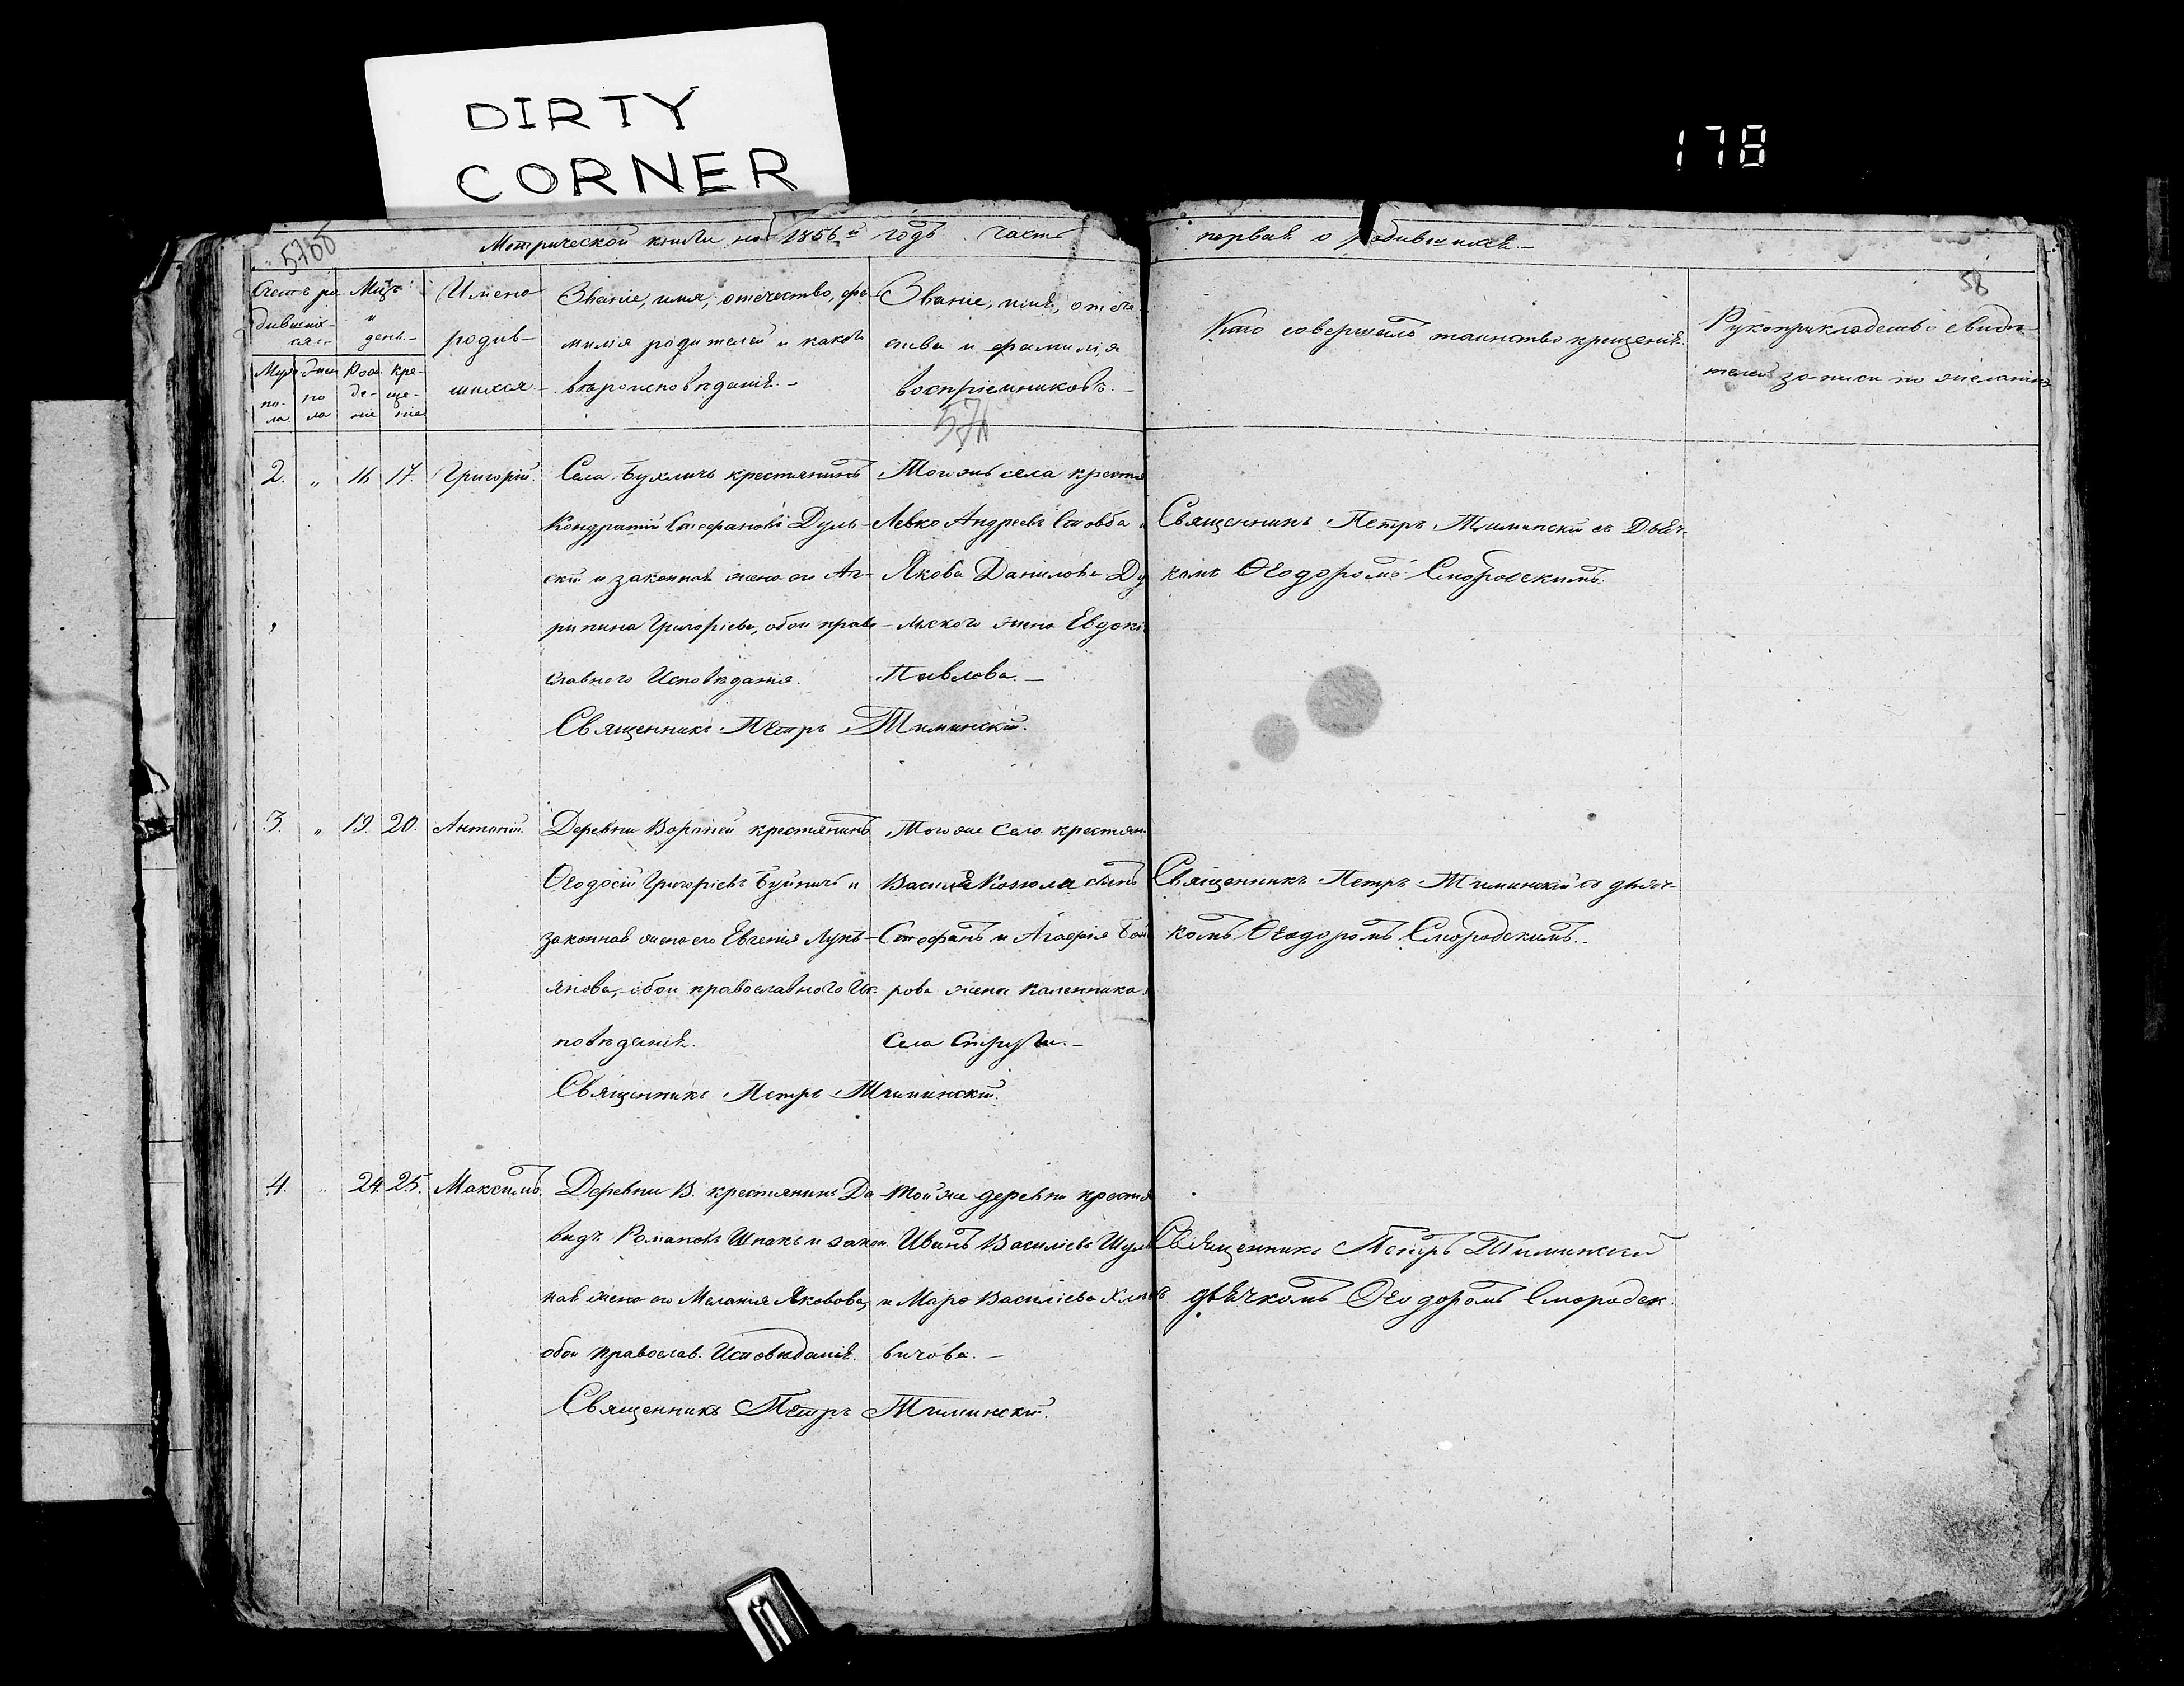 DIRTY
CORNER
178
5766
Метрической книги на 1856й годъ часть первая о родившихся.
58
Счетъ ро
дивших-
ся
Муж.
по-
ла
Жен
по
ла
Мѣсѧцъ
и
день.
Рож
де-
ніе
кре-
ще-
ніе
Имена
родив-
шихся.
Званіе, имя, отчество, фа-
милія родителей и какого
вѣроисповѣданія.
Званіе, имя, отече
ства и фамилія
воспріемниковъ.
Кто совершалъ таинство крещенія.
Рукоприкладство свидѣ-
телей записи по желанію
57
2. „ 16 17. Григорій.
Села Бухличь крестянинъ
Кондратій Стефановъ Дуль-
скій и законная жена его Аг-
рипина Григоріева, обои право-
славного Исповѣданія.
Священникъ Петръ Тиминскій.
Тогожъ села крестя
Левко Андреевъ Стовба и
Якова Данилова Ду
льского жена Евдокі
Павлова.
Священникъ Петръ Тиминскій съ Дьяч-
комъ Ѳеодоромъ Смородскимъ.
3. „ 19. 20. Антоній.
Деревни Вороней крестянинъ
Ѳеодосій Григоріевъ Буйничъ и
законная жена его Евгенія Лукъ-
янова, обои православного Ис-
повѣданія.
Священникъ Петръ Тиминскій.
Тогоже Села крестян
Василя Козюла сынъ
Стефанъ и Агафія
рова жена Каленника
Села
Священникъ Петръ Тиминскій съ дьяч-
комъ Ѳеодоромъ Смородскимъ.
4. „ 24. 25. Максимъ.
Деревни В. крестянинъ Да
видъ Романовъ Шпакъ и закон
ная жена его Меланія Яковова,
обои православ. Исповѣданія.
Священникъ Петръ Тиминскій.
Тойже деревни крестя
Иванъ Василіевъ
и Маря Василіева
вичова.
Священникъ Петръ Тиминскій
дьячкомъ Ѳеодоромъ Смородск.